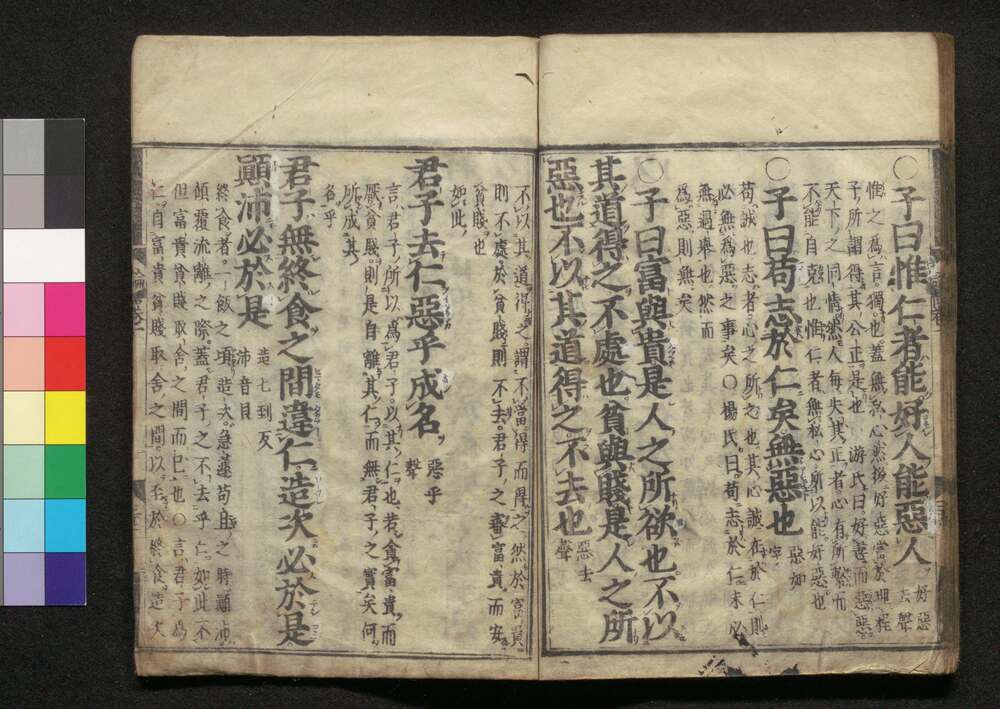 ○子曰惟仁者能好人能惡人
好惡
去聲
惟之爲言獨也蓋無私心然後好惡當於理程
子所謂得其公正是也○游氏曰好善而惡惡
天下之同情然人每失其正者心有所繫而
不能自克也惟仁者無私心所以能好惡也
○子曰苟志於仁矣無惡也
惡如
字
苟誠也志者心之所之也其心誠在於仁則
必無爲惡之事矣○楊氏曰苟志於仁未必
無過舉也然而
爲惡則無矣
○子曰富與貴是人之所欲也不以
其道得之不處也貧與賤是人之所
惡也不以其道得之不去也
惡去
聲
不以其道得之謂不當得而得之然於富貴
則不處於貧賤則不去君子之審富貴而安
貧賤也
如此
君子去仁惡乎成名
惡平
聲
言君子所以爲君子以其仁也若貪富貴而
厭貧賤則是自離其仁而無君子之實矣何
所成其
名乎
君子無終食之間違仁造次必於是
顚沛必於是
造七到反
沛音貝
終食者一飯之頃造次急遽苟且之時顚沛
傾覆流離之際蓋君子之不去乎仁如此不
但富貴貧賤取舍之間而已也○言君子爲
仁自富貴貧賤取舍之間以至於終食造次